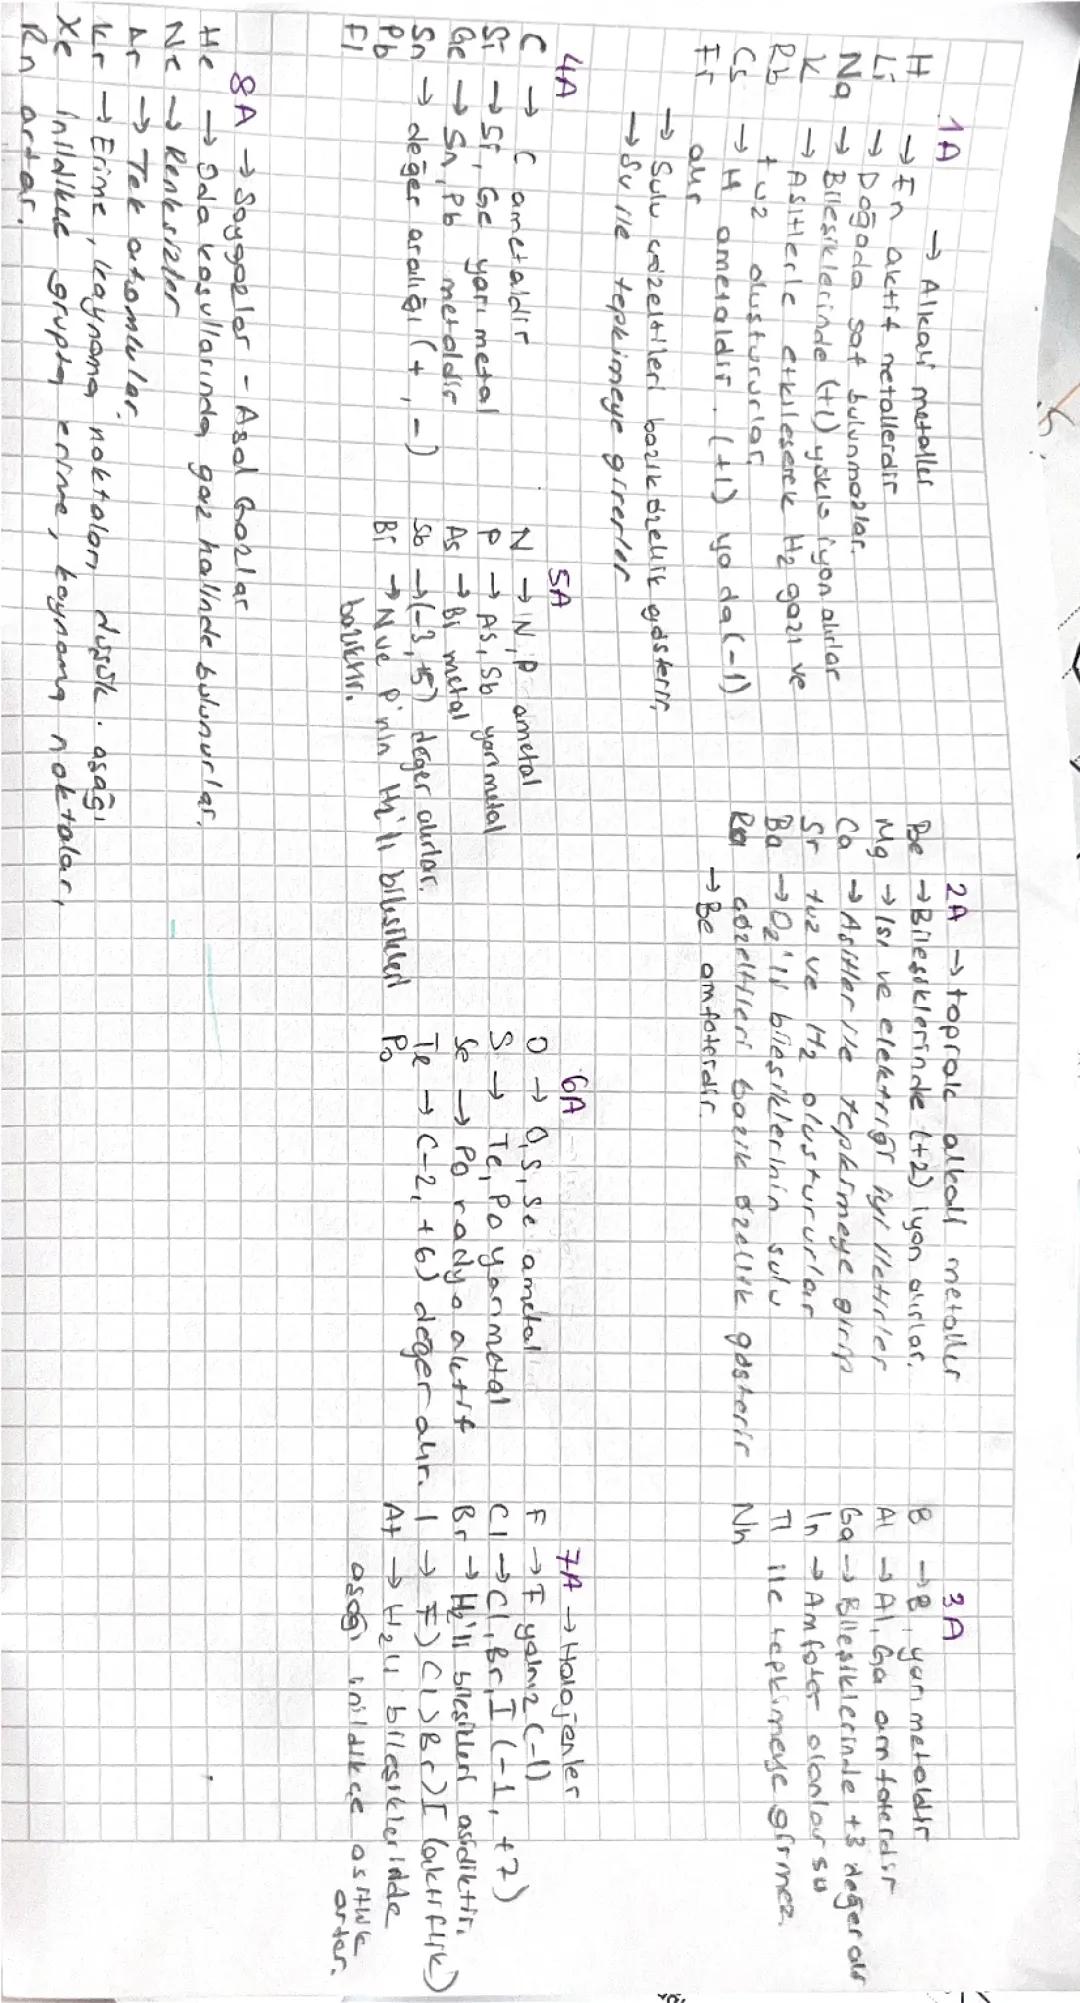 1A → Alkali metaller
H → En aktif metallerdir
Li → Doğada saf bulunmazlar.
Na → Bileşiklerinde (+1) yüklü iyon alırlar
K → Asitlerle etkileşerek H2 gazı ve
Rb tuz oluştururlar.
Cs → H ametaldir. (+1) ya da (-1)
Fr alır
→ Sulu çözeltileri bazik özellik gösterir,
→ Su ile tepkimeye girerler
2A → toprak alkali metaller
Be → Bileşiklerinde (+2) iyon alırlar.
Mg → Isı ve elektriği iyi iletirler
Ca → Asitler ile tepkimeye girip
Sr tuz ve H2 oluştururlar
Ba → O2'li bileşiklerinin sulu
Ra çözeltileri bazik özellik gösterir
→ Be amfoterdir.
3A
B → B, yarı metaldir
Al → Al, Ga amfoterdir
Ga → Bileşiklerinde +3 değer alır
In → Amfoter olanlar su
Tl ile tepkimeye girmez.
Nh
4A
C → C ametaldir
Si → Si, Ge yarı metal
Ge → Sn, Pb metaldir
Sn → değer aralığı (+, -)
Pb
Fl
5A
N → N, P ametal
P → As, Sb yarı metal
As → Bi metal
Sb → (-3, +5) değer alırlar.
Bi → N ve P'nin H'li bileşikleri
baziktir.
6A
O → O, S, Se ametal
S → Te, Po yarı metal
Se → Po radyoaktif
Te → (-2, +6) değer alır.
Po
7A → Halojenler
F → F yalnız (-1)
Cl → Cl, Br, I (-1, +7)
Br → H2'li bileşikleri asidiktir.
I → F > Cl > Br > I (aktiflik)
At → H2 li bileşiklerinde
aşağı inildikçe asitlik
artar.
8A → Soygazlar - Asal Gazlar
He → Oda koşullarında gaz halinde bulunurlar.
Ne → Renksizler
Ar → Tek atomlular.
Kr → Erime, kaynama noktaları düşük. aşağı
Xe inildikçe grupta erime, kaynama noktaları,
Rn artar.